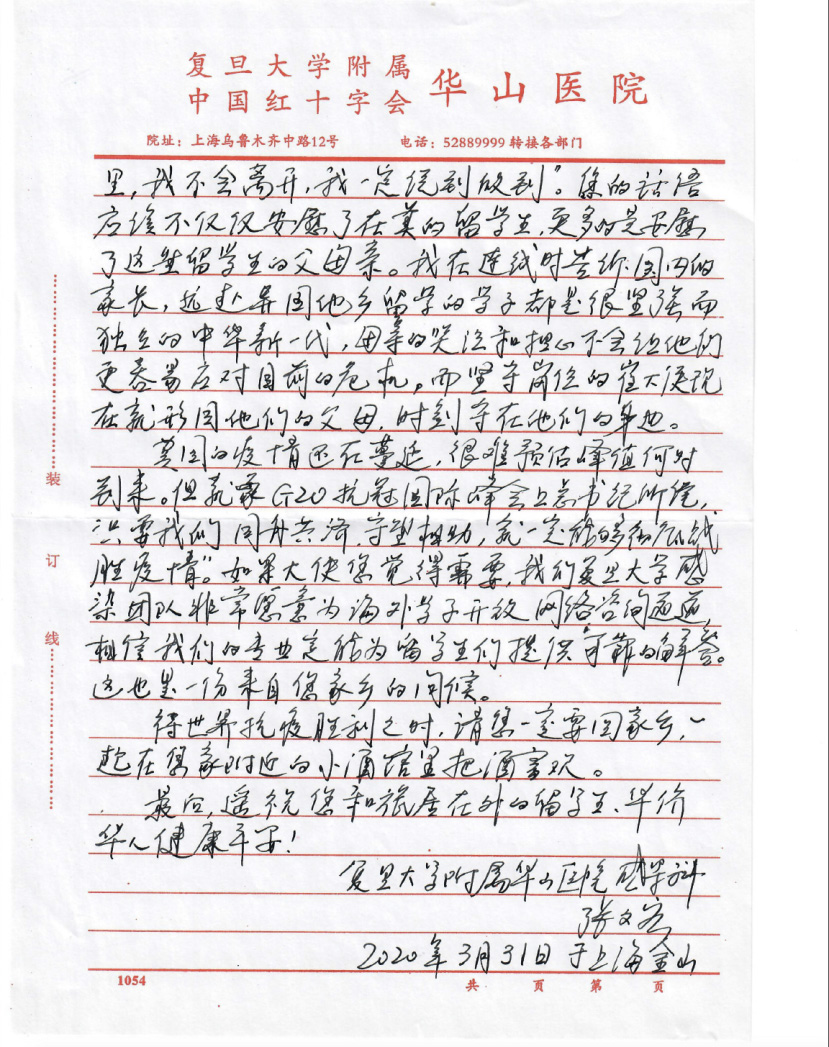 复旦大学附属
中国红十字会 华山医院
院址：上海乌鲁木齐中路12号 电话：52889999 转接各部门
里，我不会离开，我一定说到做到”。您的话语
应该不仅仅安慰了在英的留学生，更多的是安慰
了这些留学生的父母亲。我在连线时告诉国内的
家长，远赴异国他乡留学的学子都是很坚强而
独立的中华新一代，母亲的哭泣和担心不会让他们
更容易应对目前的危机。而坚守岗位的崔大使现
在就形同他们的父母，时刻守在他们的身边。
英国的疫情还在蔓延，很难预估峰值何时
到来。但就象G20抗冠国际峰会上总书记所说，
“只要我们同舟共济、守望相助，就一定能够彻底战
胜疫情”。如果大使您觉得需要，我们复旦大学感
染团队非常愿意为海外学子开放网络咨询通道，
相信我们的专业定能为留学生们提供可靠的解答。
这也是一份来自您家乡的问候。
待世界抗疫胜利之时，请您一定要回家乡，一
起在您家附近的小酒馆里把酒言欢。
最后，遥祝您和旅居在外的留学生、华侨
华人健康平安！
复旦大学附属华山医院感染科
张文宏
2020年3月31日于上海金山
装
订
线
1054 共 页 第 页